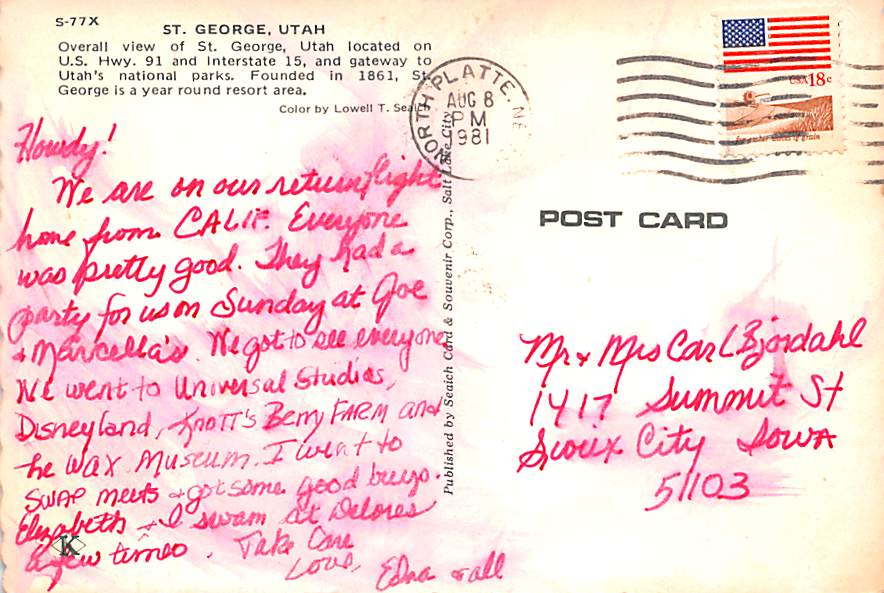 S-77X
ST. GEORGE, UTAH
Overall view of St. George, Utah located on
U.S. Hwy. 91 and Interstate 15, and gateway to
Utah's national parks. Founded in 1861, St.
George is a year round resort area.
Color by Lowell T. Seaich
Howdy!
We are on our return flight
home from CALIF. Everyone
was pretty good. They had a
party for us on Sunday at Joe
& Marcella's. We got to see everyone
We went to Universal Studios,
Disneyland, Knott's Berry FARM and
the WAX Museum. I went to
SWAP meets & got some good buys.
Elizabeth & I swam at Delores
a few times. Take Care
Love,
Edna & all
K
Published by Seaich Card & Souvenir Corp., Salt Lake City
NORTH PLATTE, NE
AUG 8
PM
1981
USA 18c
for amber waves of grain
POST CARD
Mr & Mrs Carl Bjordahl
1417 Summit St
Sioux City Iowa
51103